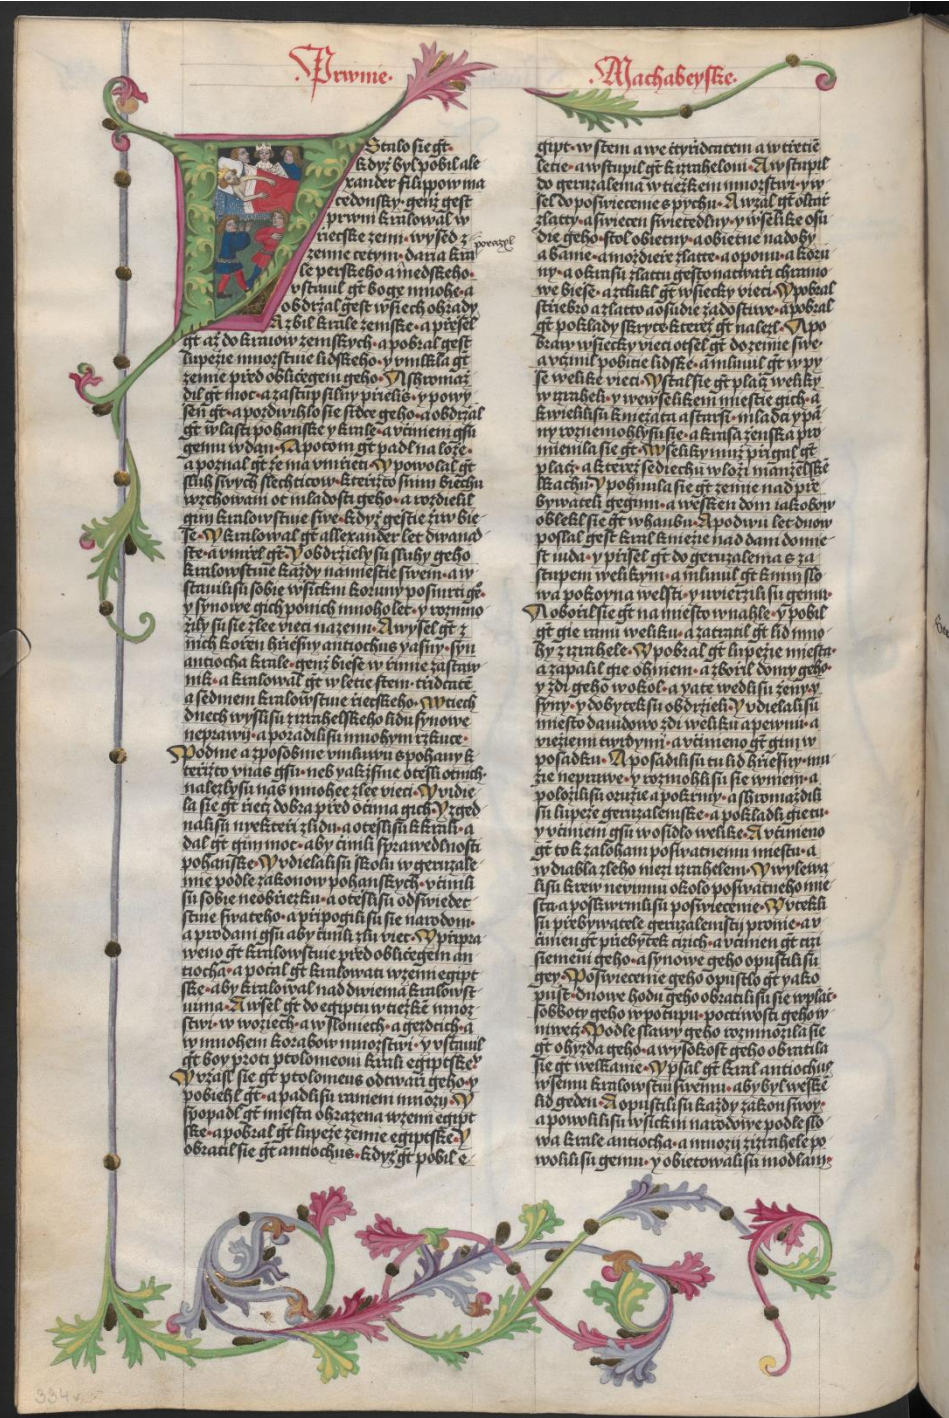 Prwnie·
Machabeyske·
Stalo sie gt·
kdyz byl pobil ale
xander filippow ma
cedonsky· genz gest
prwni kralowal w
rziecske zemi· wysed z
porazyl
zemie cetym· daria kra
le perskeho a medskeho·
vstawil gt bogow mnoho· a
obdrzal gest wsiech ohrady
A zbil krale zemske· a prziesel
gt az do kragiow zemskych· a pobral gest
lupezie mnozstwie lidskeho· y vmlkla gt
zemie przed obliczegem geho· A shromaz
dil gt moc· a zastup silny przielis· y powy
sen gt· a pozdwihlo sie srdce geho· a obdrzal
gt wlasti pohanske y krale· a vcinieni gsu
gemu w dan· A potom gt padl na loze·
a poznal gt ze ma vmrzieti· Y powolal gt
sluh swych slechticow· kterzizto s nim biechu
wzchowani ot mladosti geho· a rozdielil
gim kralowstwie swe· kdyz gestie ziw bie
se· Y kralowal gt allexander let dwanad
ste· a vmrzel gt· Y obdrzieli su sluhy geho
kralowstwie kazdy na miestie swem· a w
stawili su sobie wsickni koruny po smrti ge°·
y synowe gich po nich mnoho let· y rozmno
zily su sie zlee wieci na zemi· A wysel gt z
nich korzen hrziesny antiochus yasny· syn
antiocha krale· genz biese w rzimie zastaw
nik· a kralowal gt w letie stem· tridcatem
a sedmem kralowstwie rzieckeho· W tiech
dnech wysli su z izrahelskeho lidu synowe
neprawij· a poradili su mnohym rzkuce·
Podme a zposobme vmluwu s pohany k
terzizto v nas gsu· neb yakz sme otesli ot nich·
nalezly su nas mnohee zlee wieci· Y widie
la sie gt rziecz dobra przed oczima gich· Y zged
nali su nyekterzi z lidu· a otesli su k krali· a
dal gt gim moc· aby cinili sprawedlnosti
pohanske· Y vdielali su skolu w geruzale
mie podle zakonow pohanskych· vcinili
su sobie neobrzezku· a otesli su od swiedec
stwie swateho· a przipogili su sie narodom·
a prodani gsu aby cinili zlu wiec· Y przipra
weno gt kralowstwie przed obliczegem an
tiocha· a pocal gt kralowati w zemi egipt
ske· aby kralowal nad dwiema kralowst
wima· A wsel gt do egipta w tiezkem mnoz
stwi· w woziech· a w sloniech· a gezdcich· a
w mnohem korabow mnozstwi· y vstawil
gt boy proti ptolomeowi krali egiptskeu
Y vzasl sie gt ptolomeus od twarzi geho· y
pobiehl gt· a padli su ranieni mnozij· Y
popadl gt miesta ohrazena w zemi egipt
ske· a pobral gt lupeze zemie egiptske· Y
obratil sie gt antiochus· kdyz gt pobil e
gipt· w stem a we ctyridcatem a w trzetie
letie· a wstupil gt k izrahelowi· A wstupil
do geruzalema w tiezkem mnozstwi· y w
sel do poswiecenie s pychu· A wzal gt oltarz
zlatty· a swiecen swietedlny· y wselike osu
die geho· stol obietny· a obietne nadoby
a banie· a mozdierze zlatte· a oponu· a koru
ny· a okrasu zlattu gesto na twarzi chramo
we biese· a ztlukl gt wsiecky wieci· Y pobral
strziebro a zlatto a osudie zadostiwe· a pobral
gt poklady skryte kterez gt nalezl· A po
braw wsiecky wieci otsel gt do zemie swe·
a vcinil pobitie lidske· a mluwil gt w py
se welike wieci· Y stal sie gt placz weliky
w izraheli· y we wselikem miestie gich· a
kwielili su kniezata a starssi· mladci y pa
ny roznemohly su sie· a krasa zenska pro
mienila sie gt· Wseliky muz przigal gt
placz· a kterez sediechu w lozi manzelske
lkachu· Y pohnula sie gt zemie nad prze
bywateli gegimi· a wesken dom iakobow
oblekl sie gt w hanbu· A po dwu let dnow
poslal gest kral kniezie nad dani do mie
st iuda· y prziesel gt do geruzalema s za
stupem welikym· a mluwil gt k nim slo
wa pokoyna we lsti· y uwierzili su gemu·
A oborzil sie gt na miesto w nahle· y pobil
gt gie ranu weliku· a zatratil gt lid mno
hy z izrahele· Y pobral gt lupezie miesta·
a zapalil gie ohniem· a zborzil domy geho·
y zdi geho wokol· a yate wedli su zeny· y
syny· y dobytek su obdrzieli· Y vdielali su
miesto dauidowo zdi weliku a pewnu· a
wiezemi twrdymi· a vcinieno gt gim w
posadku· A posadili su tu lid hrziesny· mu
zie neprawe· y rozmohli su sie w niem· a
polozili su oruzie a pokrmy· a shromazdili
su lupeze geruzalemske· a pokladli gie tu·
y vcinieni gsu w osidlo welike· A vcinieno
gt to k zaloham poswatnemu miestu· a
w diabla zleho mezi izrahelem· Y wylewa
li su krew newinnu okolo poswatneho mie
sta· a poskwrnili su poswiecenie· Y vtekli
su przebywatele geruzalemstij pro nie· a v
cinien gt przebytek cizich· a vcinien gt cizi
siemeni geho· a synowe geho opustili su
gey· Poswiecenie geho opustlo gt yako
pust· dnowe hodu geho obratili su sie w placz·
sobboty geho w potupu· poctiwosti geho w
niwecz· Podle slawy geho rozmnozila sie
gt ohyzda geho· a wysokost geho obratila
sie gt w elkanie· Y psal gt kral antiochus
wsemu kralowstwi swemu· aby byl wesken
lid geden· A opustili su kazdy zakon swoy·
a powolili su wsickni narodowe podle slo
wa krale antiocha· a mnozij z izrahele po
wolili su gemu· y obietowali su modlam·
334v